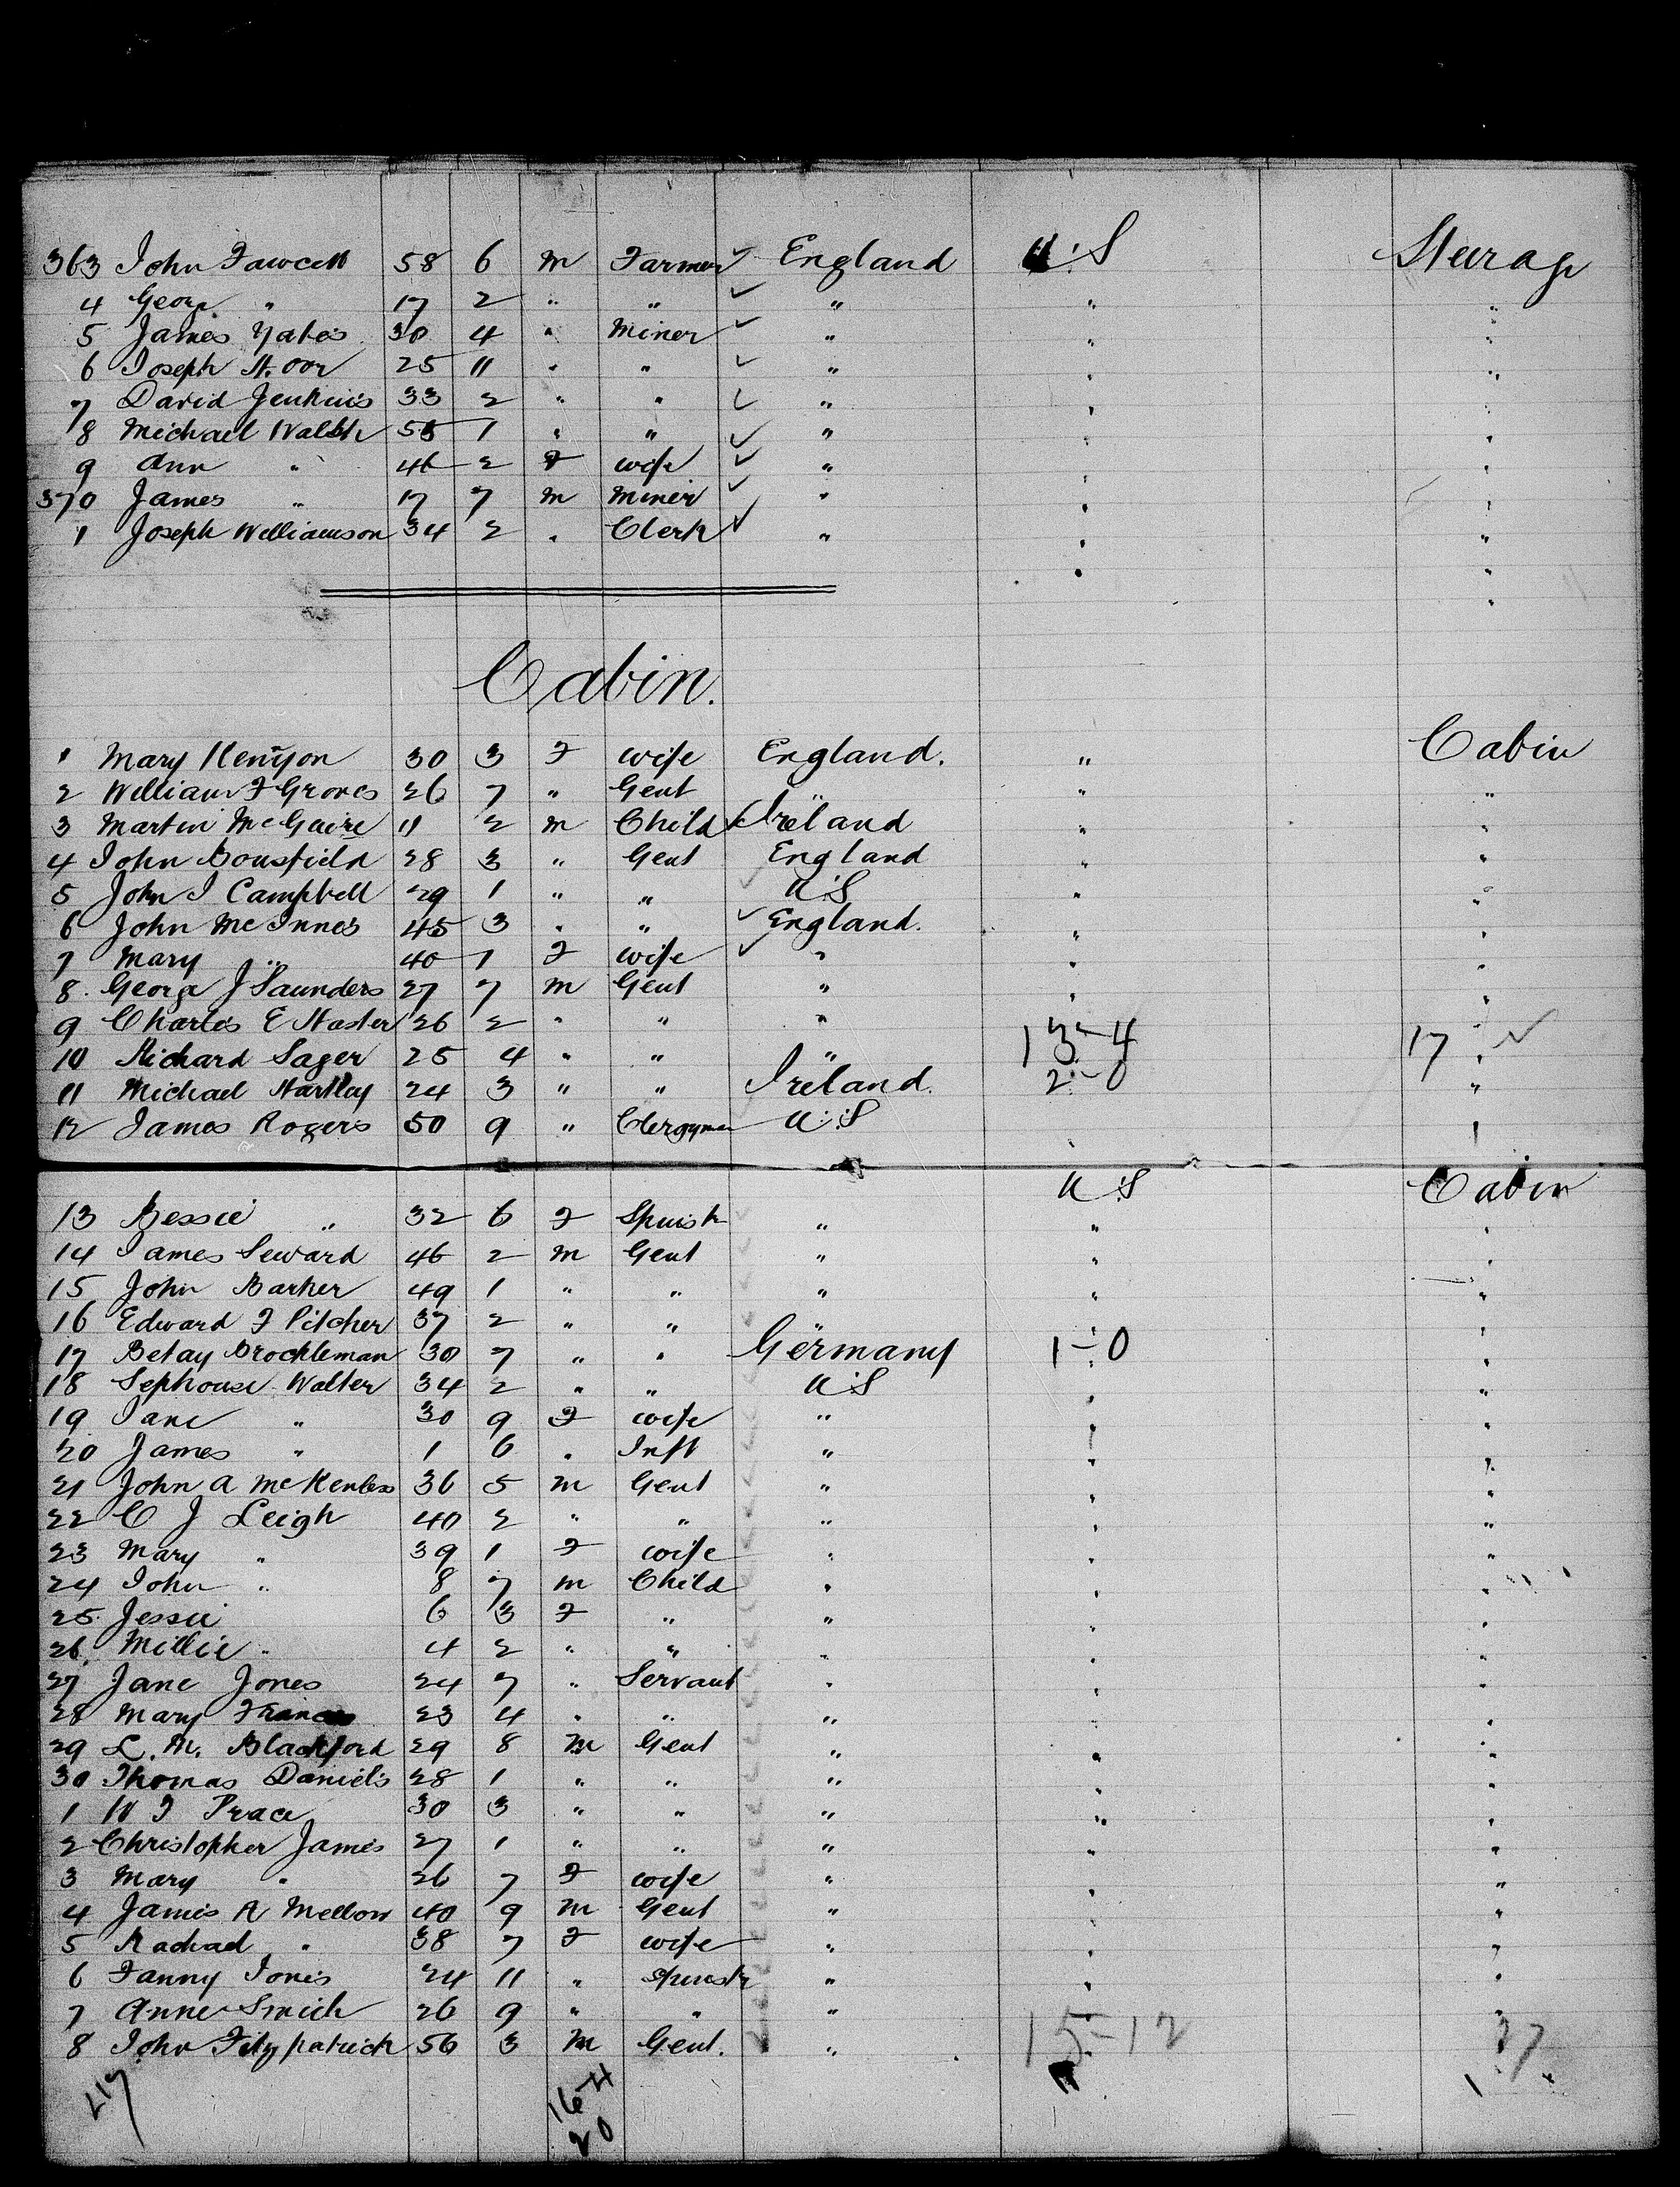 363 John Fawcett 58 6 m Farmer ✓ England U.S Steerage
4 George " 17 2 " " ✓ " " "
5 James Yates 30 4 " Miner ✓ " " "
6 Joseph 25 11 " " ✓ " " "
7 David Jenkins 33 2 " " ✓ " " "
8 Michael Walsh 55 1 " " ✓ " " "
9 Ann " 46 2 F wife ✓ " " "
370 James " 17 7 m miner ✓ " " "
1 Joseph Williamson 34 2 " Clerk ✓ " " "
Cabin.
1 Mary Kenyon 30 3 F wife England. " Cabin
2 William F Groves 26 7 " Gent " " "
3 Martin McGuire 11 2 m Child ✓ Ireland " "
4 John Bousfield 28 3 " Gent England " "
5 John J Campbell 29 1 " " ✓ U.S " "
6 John McInnes 45 3 " " ✓ England. " "
7 Mary " 40 1 F wife ✓ " " "
8. George J Saunders 27 7 m Gent " " "
9 Charles E 26 2 " " " 13-4 17 ✓
10 Richard Sager 25 4 " " " 2-0 "
11 Michael Hartley 24 3 " " Ireland. "
12 James Rogers 50 9 " Clergyman U.S "
U.S Cabin
13 Bessie " 32 6 F Spinstr " " "
14 James Seward 46 2 m Gent " " "
15 John Barker 49 1 " " " " "
16 Edward F Pitcher 37 2 " " " " "
17 Betay Brockleman 30 7 " " Germany 1-0 "
18 Sephouse Walter 34 2 " " U.S " "
19 Jane " 30 9 F wife " " "
20 James " 1 6 " Inft " " "
21 John A 36 5 m Gent " " "
22 C J Leigh 40 2 " " " " "
23 Mary " 39 1 F wife " " "
24 John " 8 7 m Child " " "
25. Jessie 6 3 F " " " "
26. Millie " 4 2 " " " " "
27 Jane Jones 24 7 " Servant " " "
28 Mary Frances 23 4 " " " " "
29 L. M. Blackford 29 8 m Gent " " "
30 Thomas Daniels 28 1 " " " " "
1 W J Prace 30 3 " " " " "
2 Christopher James 27 1 " " " " "
3 Mary " 26 7 F wife " " "
4 James A Mellow 40 9 m Gent " " "
5 Rachael " 38 7 F wife " " "
6 Fanny Jones 24 11 " Spinstr " " "
7 Anne Smith 26 9 " " " " "
8 John Fitzpatrick 56 3 m Gent. " 15-12 37
16-4
20